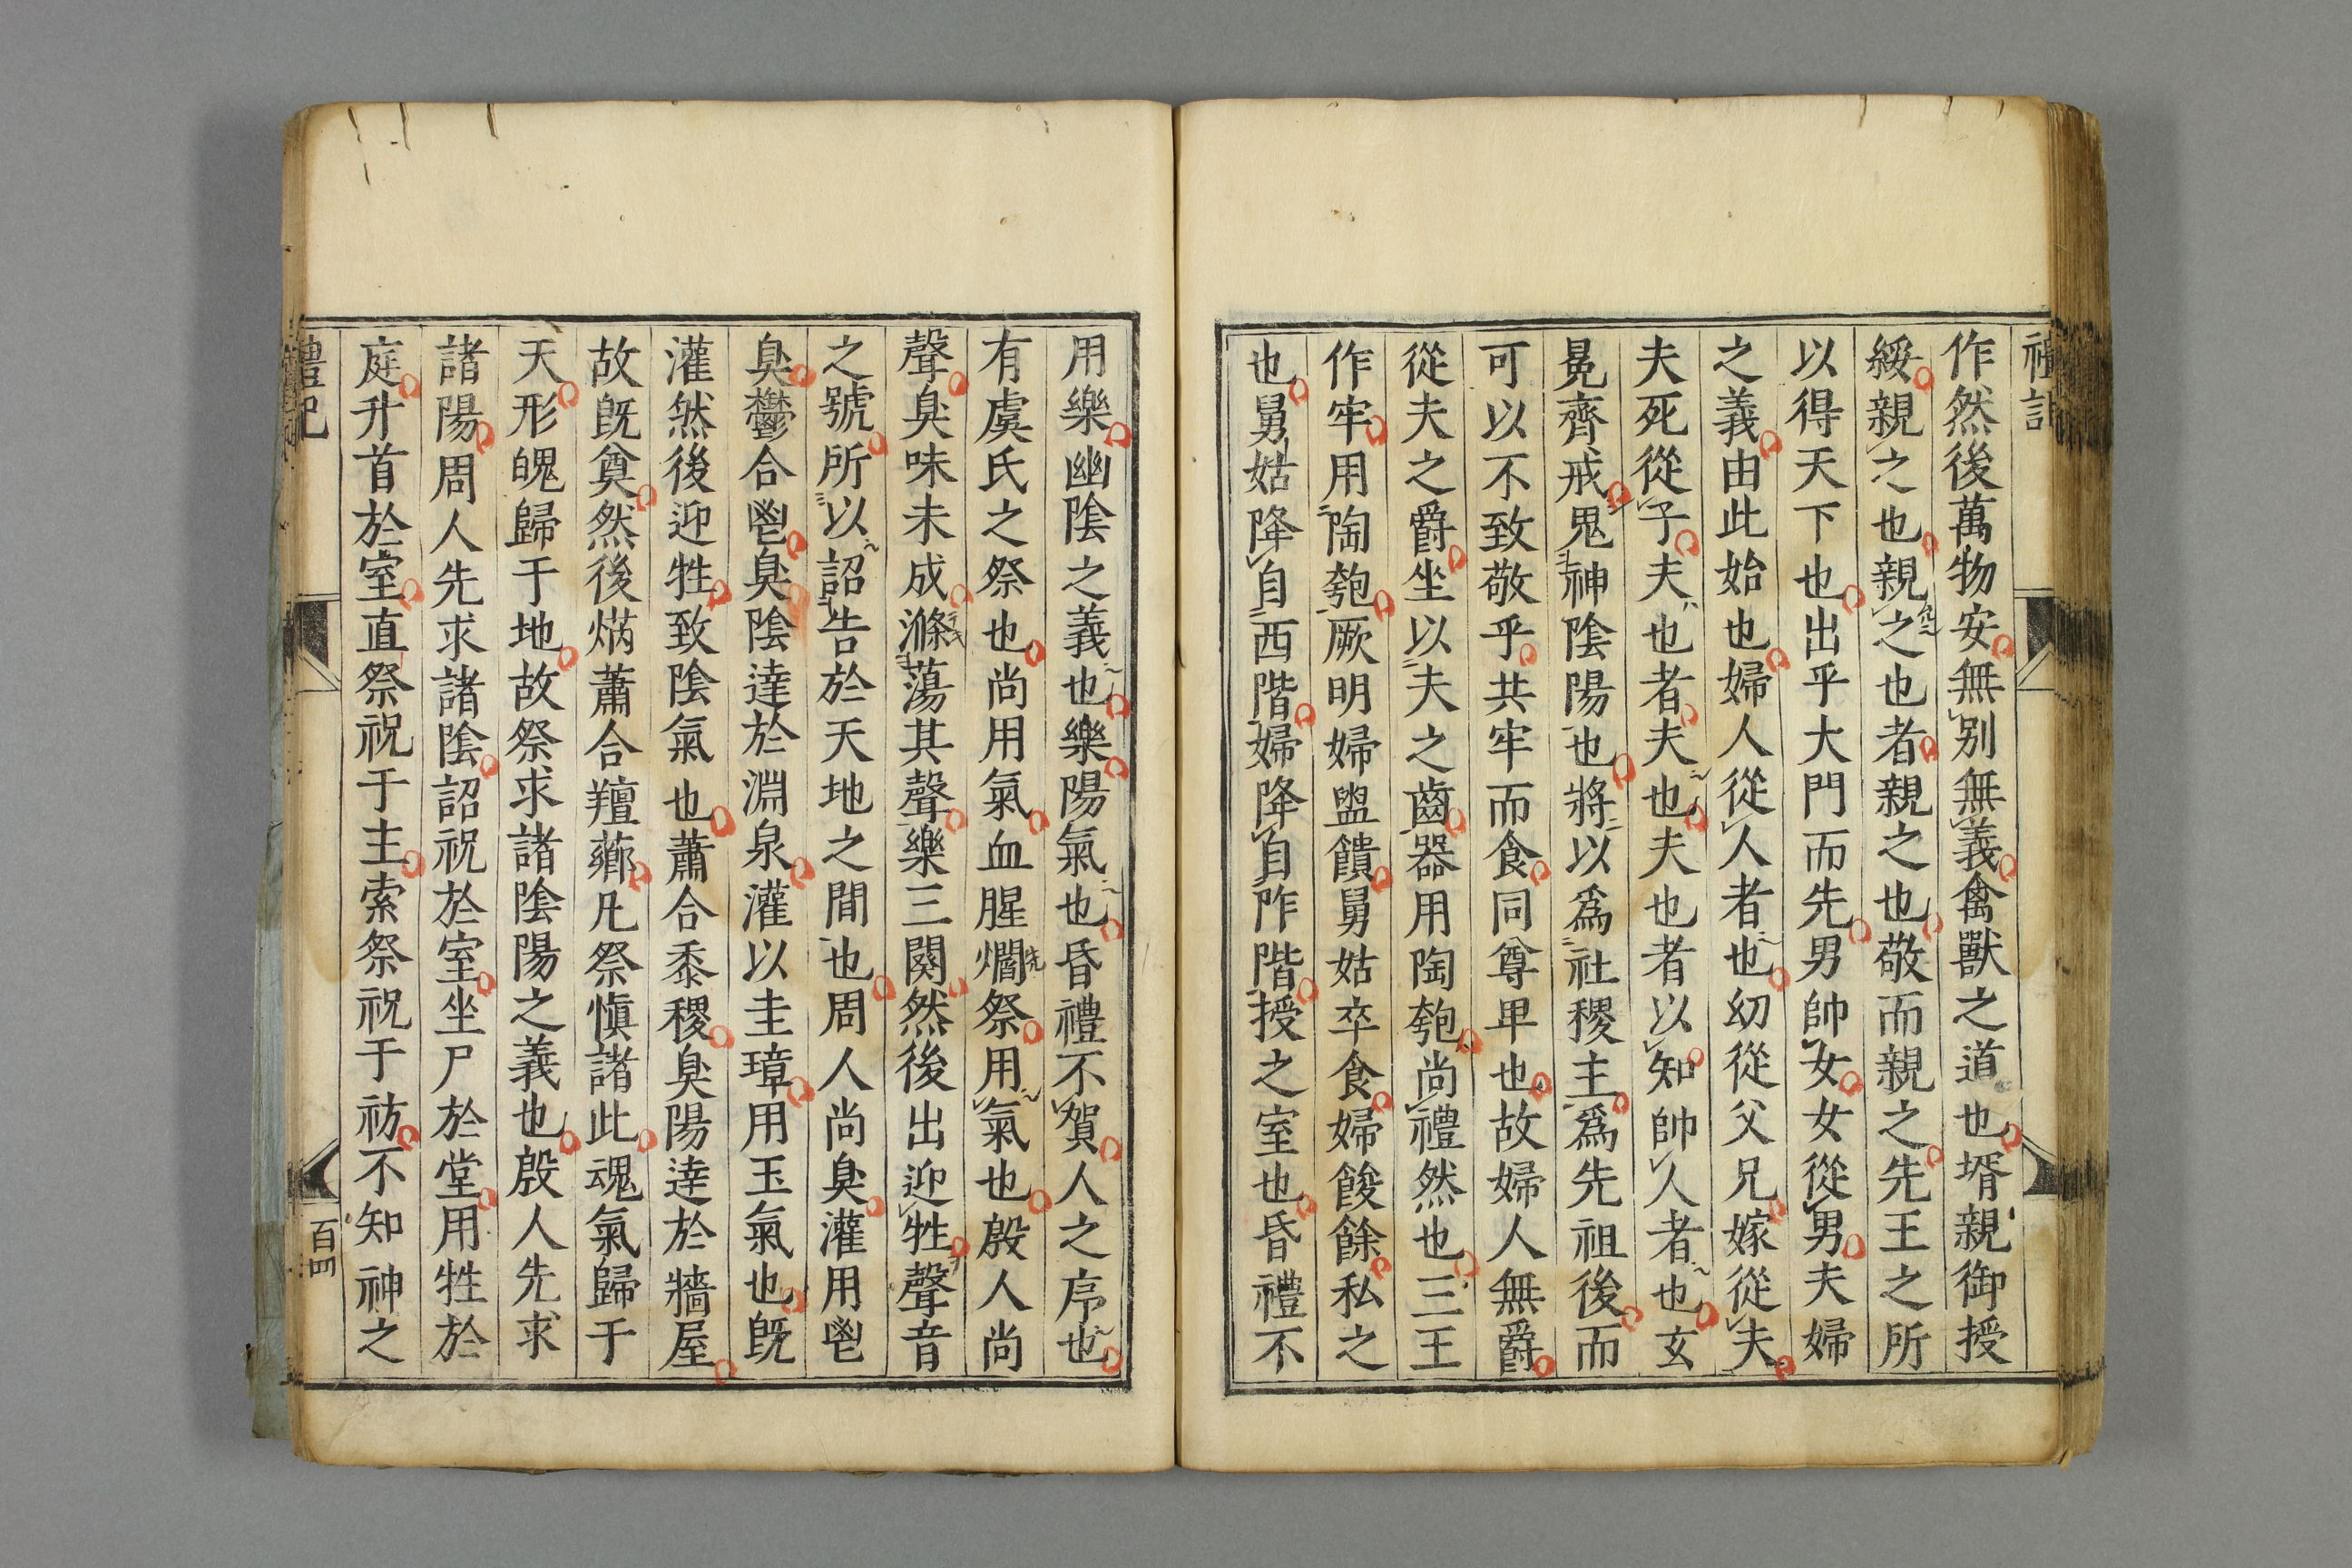 禮記
作然後萬物安無別無義禽獸之道也壻親御授
綏親之也親之也者親之也敬而親之先王之所
以得天下也出乎大門而先男帥女女從男夫婦
之義由此始也婦人從人者也幼從父兄嫁從夫
夫死從子夫也者夫也夫也者以知帥人者也玄
冕齊戒鬼神陰陽也將以爲社稷主爲先祖後而
可以不致敬乎共牢而食同尊卑也故婦人無爵
從夫之爵坐以夫之齒器用陶匏尚禮然也三王
作牢用陶匏厥明婦盥饋舅姑卒食婦餕餘私之
也舅姑降自西階婦降自阼階授之室也昏禮不
用樂幽陰之義也樂陽氣也昏禮不賀人之序也
有虞氏之祭也尚用氣血腥爓祭用氣也殷人尚
聲臭味未成滌蕩其聲樂三闋然後出迎牲聲音
之號所以詔告於天地之間也周人尚臭灌用鬯
臭鬱合鬯臭陰達於淵泉灌以圭璋用玉氣也旣
灌然後迎牲致陰氣也蕭合黍稷臭陽達於牆屋
故旣奠然後焫蕭合羶薌凡祭愼諸此魂氣歸于
天形魄歸于地故祭求諸陰陽之義也殷人先求
諸陽周人先求諸陰詔祝於室坐尸於堂用牲於
庭升首於室直祭祝于主索祭祝于祊不知神之
禮記
百四